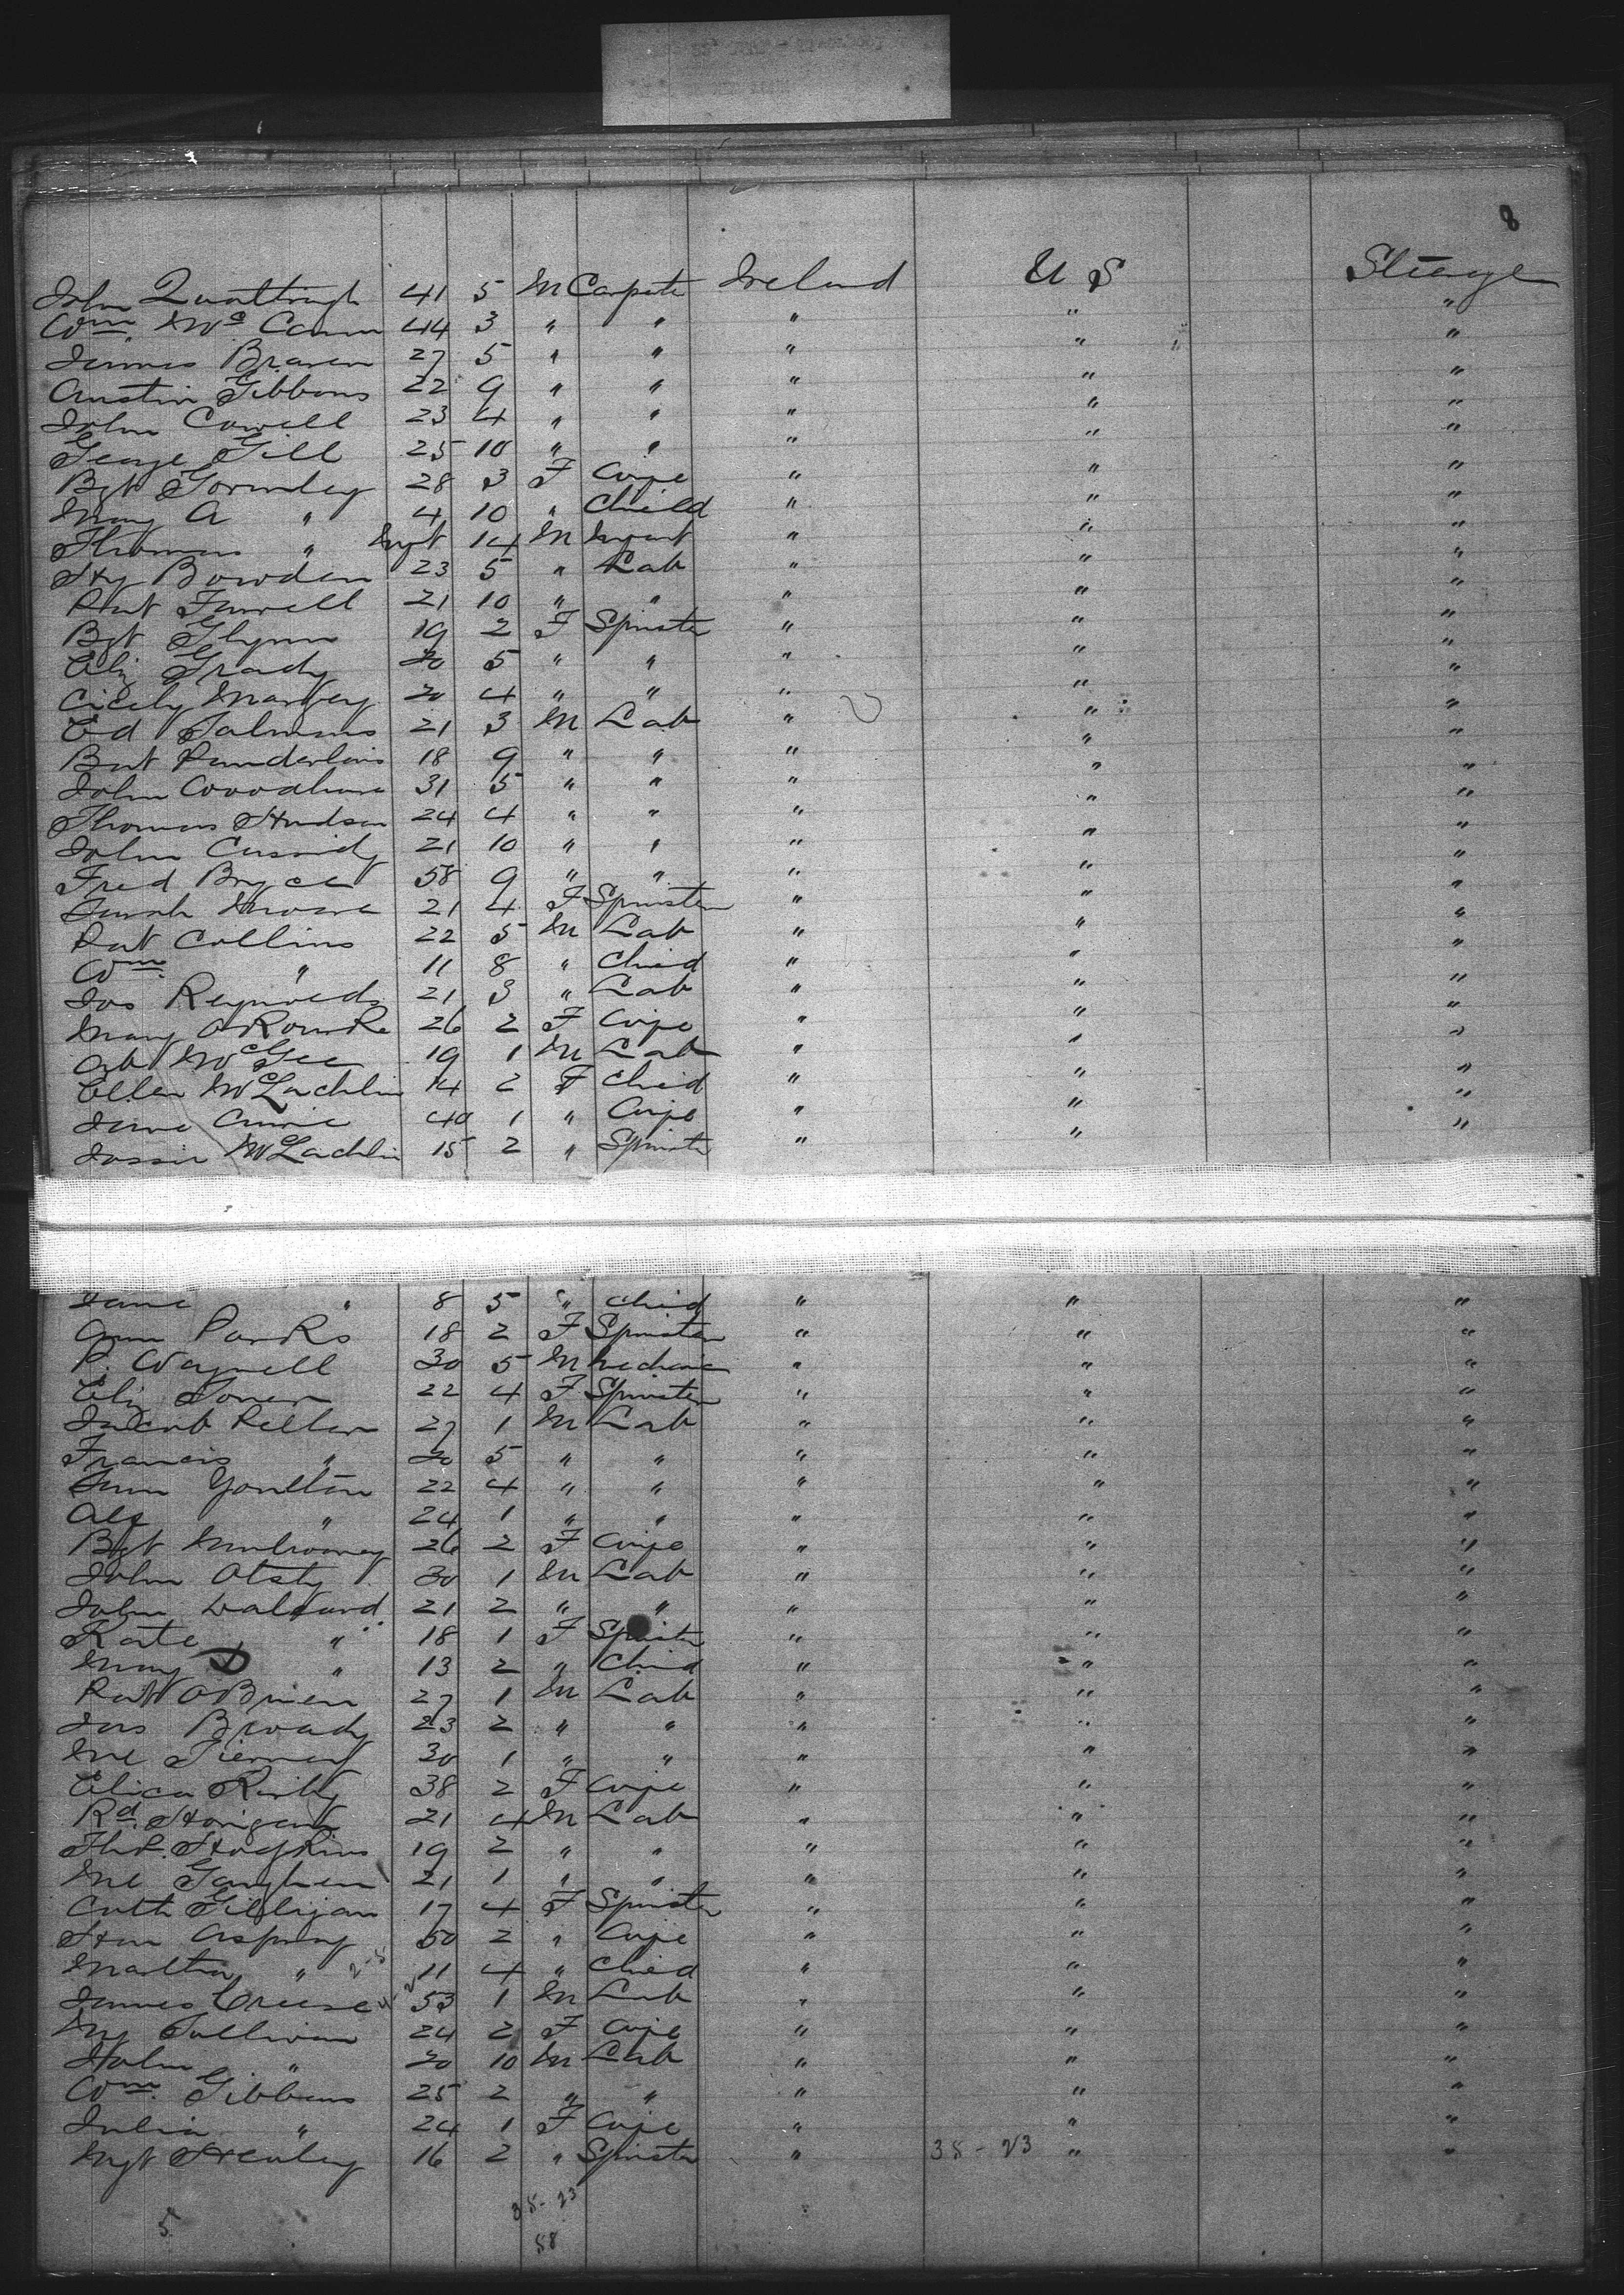 8
John Qualtrough 41 5 M Carpete Ireland U S Steage
Wm. Mc Cann 44 3 " " " " "
James Braven 27 5 " " " " "
Austin Gibbons 22 9 " " " " "
John Cowell 23 4 " " " " "
George Gill 25 10 " " " " "
Bgt Gormley 28 3 F Wife " " "
Mary A " 4 10 " Child " " "
Thomas " Inft 14 M Infant " " "
Hy Bowden 23 5 " Lab " " "
Pat Farrell 21 10 " " " " "
Bgt Glynn 19 2 F Spinster " " "
Eliz Grady 20 5 " " " " "
Cicely 20 4 " " " " "
Ed Salmons 21 3 M Lab " " "
Bat 18 9 " " " " "
John Woodhouse 31 5 " " " " "
Thomas Hudson 24 4 " " " " "
John Cassidy 21 10 " " " " "
Fred Bryce 58 9 " " " " "
Sarah Moore 21 4 F Spinster " " "
Pat Collins 22 5 M Lab " " "
Wm. " 11 8 " Child " " "
Jos Reynolds 21 3 " Lab " " "
Mary O'Rourke 26 2 F Wife " " "
McGee 19 1 M Lab " " "
Ellen McLachlin 14 2 F Child " " "
Jane 40 1 " Wife " " "
Jossie McLachlin 15 2 " Spinster " " "
Jane " 8 5 " Child " " "
Ann Parks 18 2 F Spinster " " "
P. 30 5 M Mechanic " " "
Eliz 22 4 F Spinster " " "
Jacob 27 1 M Lab " " "
Francis " 20 5 " " " " "
Youlton 22 4 " " " " "
Alf " 24 1 " " " " "
Bgt Mulrooney 26 2 F Wife " " "
John 30 1 M Lab " " "
John 21 2 " " " " "
Kate " 18 1 F Spinster " " "
Mary " 13 2 " Child " " "
Pat O'Brien 27 1 M Lab " " "
Jas Broady 23 2 " " " " "
Ml Tierney 30 1 " " " " "
Eliza 38 2 F Wife " " "
Rd. 21 4 M Lab " " "
Thos. Hopkins 19 2 " " " " "
Ml Gaughen 21 1 " " " " "
Cath Gilligan 17 4 F Spinster " " "
50 2 " Wife " " "
Martha " 11 4 " Child " " "
James Creese 53 1 M Lab " " "
My Sullivan 24 2 F Wife " " "
John " 20 10 M Lab " " "
Wm. Gibbons 25 2 " " " " "
Julia " 24 1 F Wife " " "
Mgt Healey 16 2 " Spinster " 38-23 " "
38-23
5
58